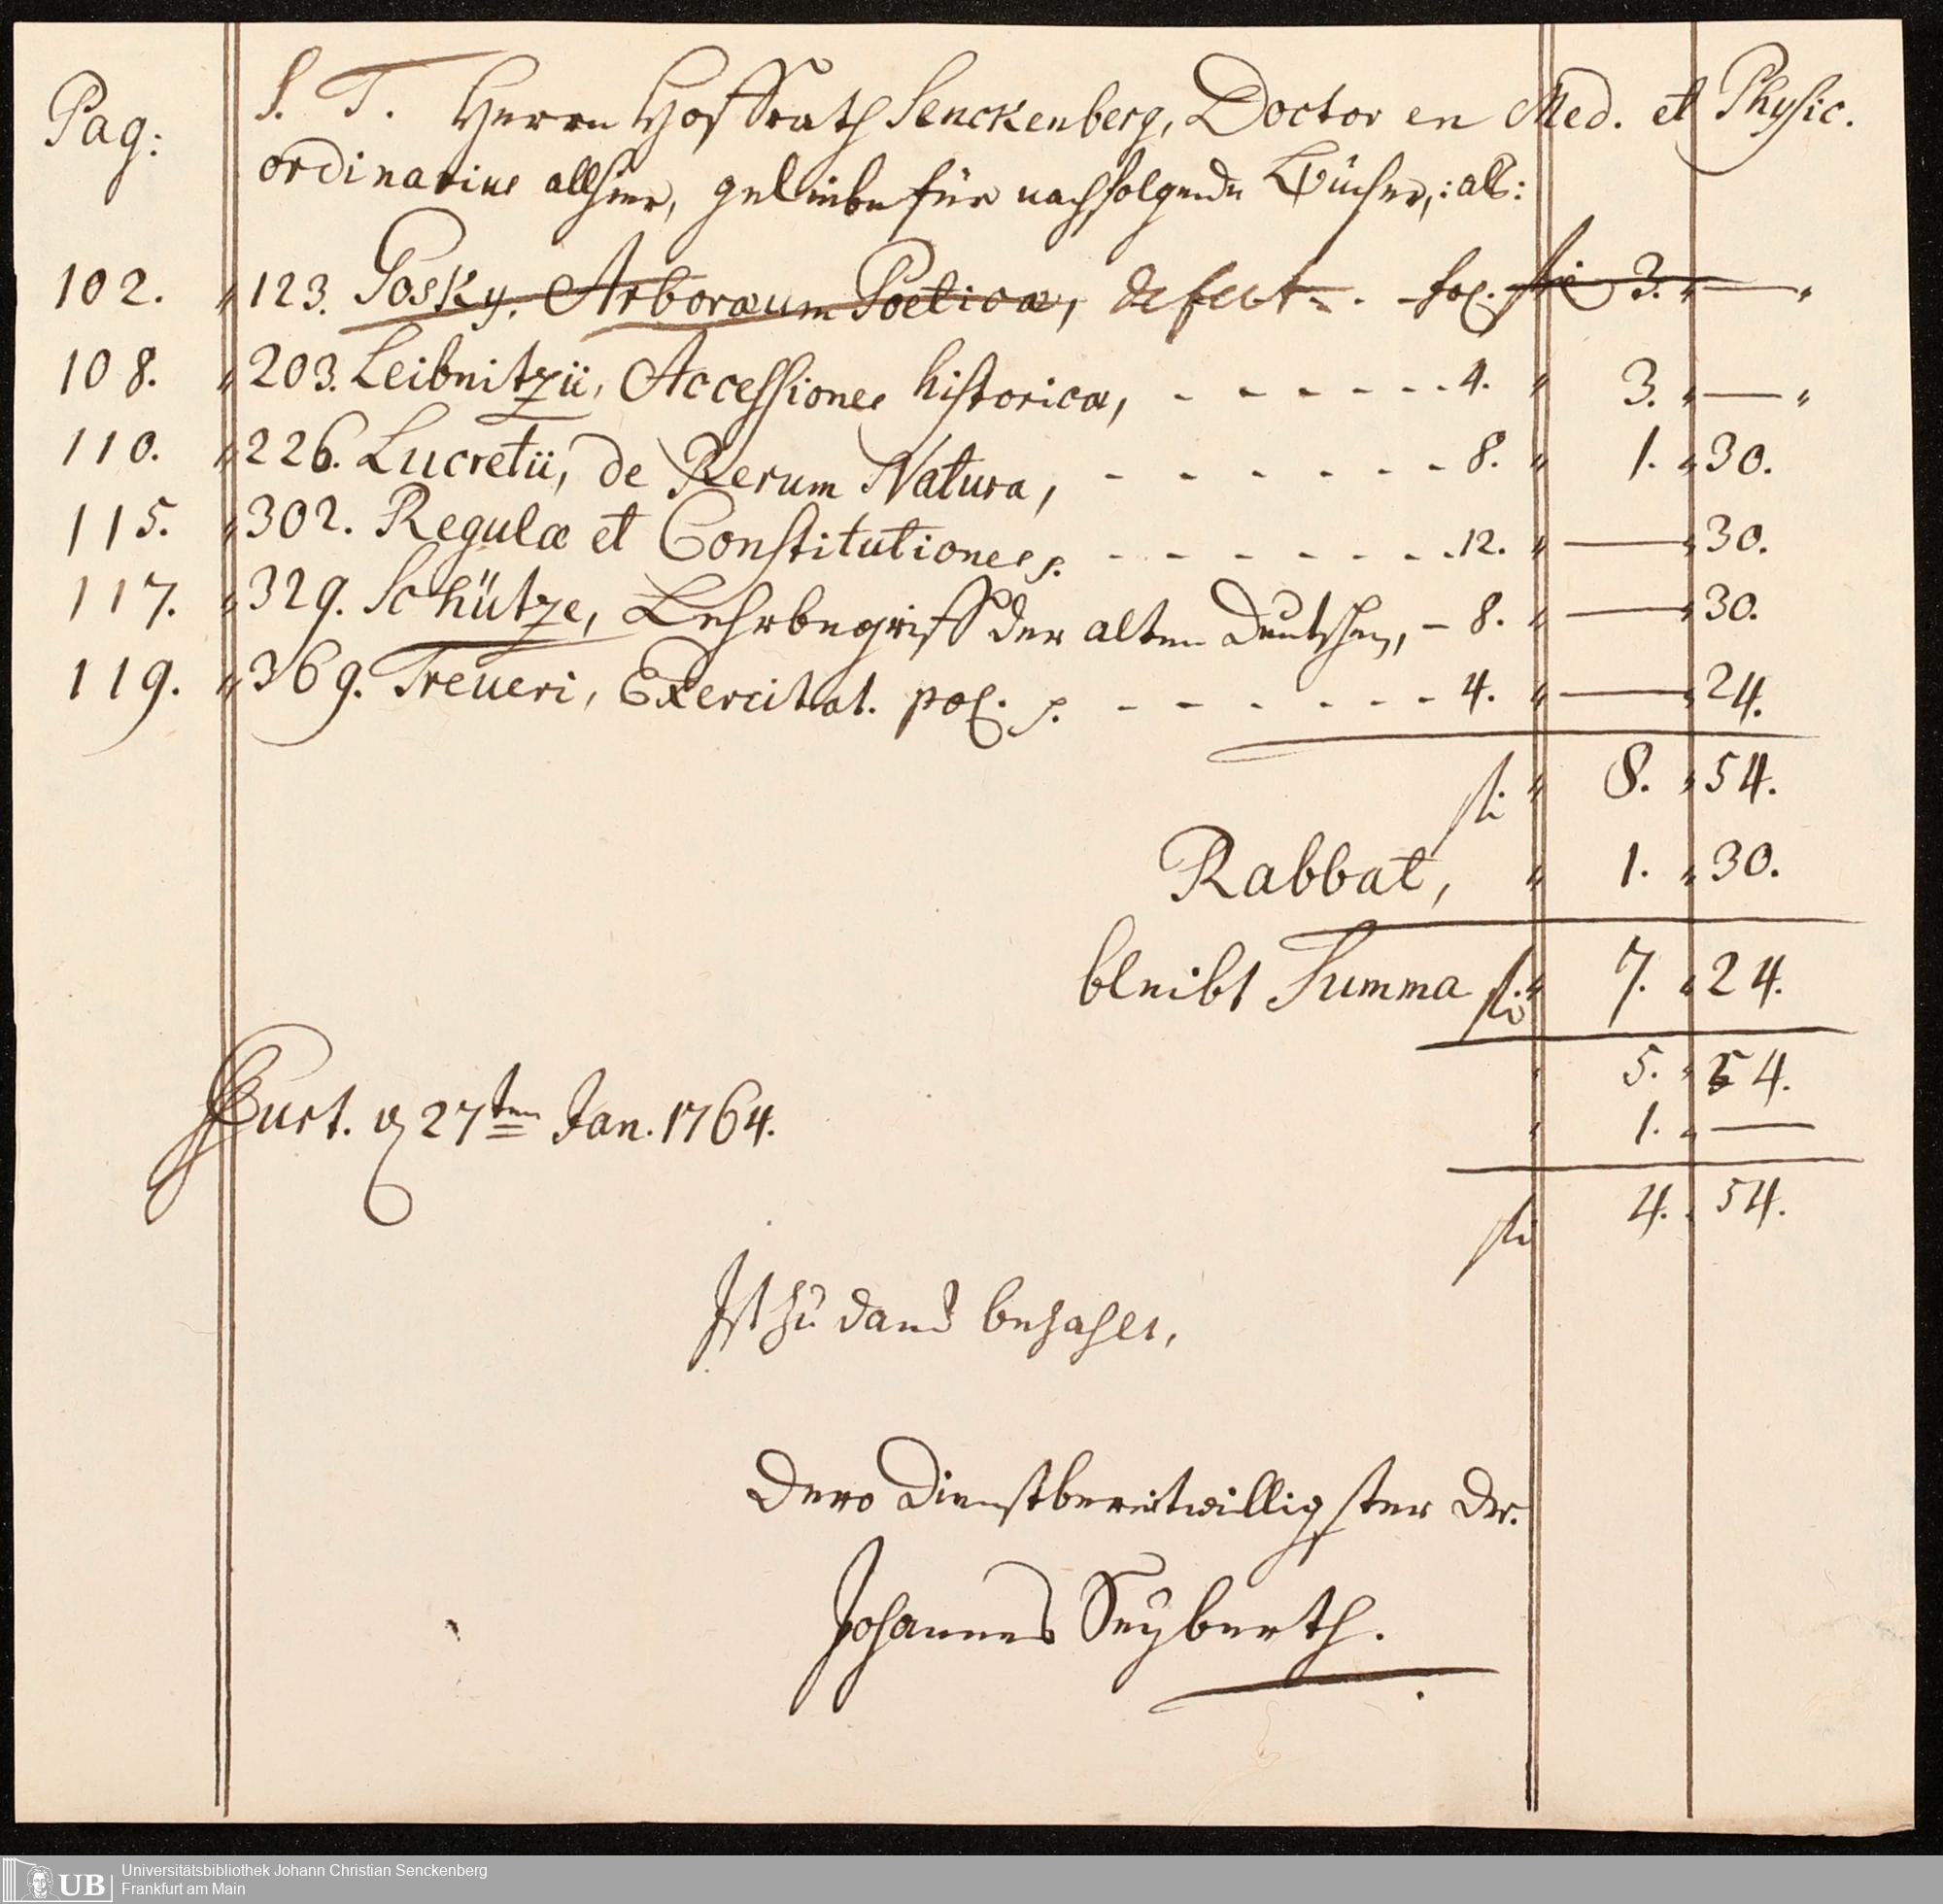 Pag: S. T. Herrn Hoffrath Senckenberg, Doctor en Med. et Physic.
ordinarius allhier, geliebe für nachfolgende Bücher,: als:
102. " 123. Posky. Arboraum Poetica, defect. - fol. fl 3. " — "
108. " 203. Leibnitzii, Accessiones historicæ, - - - - - - - 4. " 3. " — "
110. " 226. Lucretii, de Rerum Natura, - - - - - - - 8. " 1. " 30.
115. " 302. Regulæ et Constitutiones p. - - - - - - - 12. " — " 30.
117. " 329. Schütze, Lehrbegriff der alten Deutschen, - 8. " — " 30.
119. " 369. Treueri, Exercitat. pol. p. - - - - - - - 4. " — " 24.
fl " 8. " 54.
Rabbat, " 1. " 30.
bleibt Summa fl. " 7. " 24.
" 5. " 54.
Furt. d 27ten Jan. 1764.
" 1. " —
fl 4. " 54.
Ist zu danck bezahlt,
Dero Dienstbereitwilligster Dr.
Johannes Seyberth.
UB
Universitätsbibliothek Johann Christian Senckenberg
Frankfurt am Main